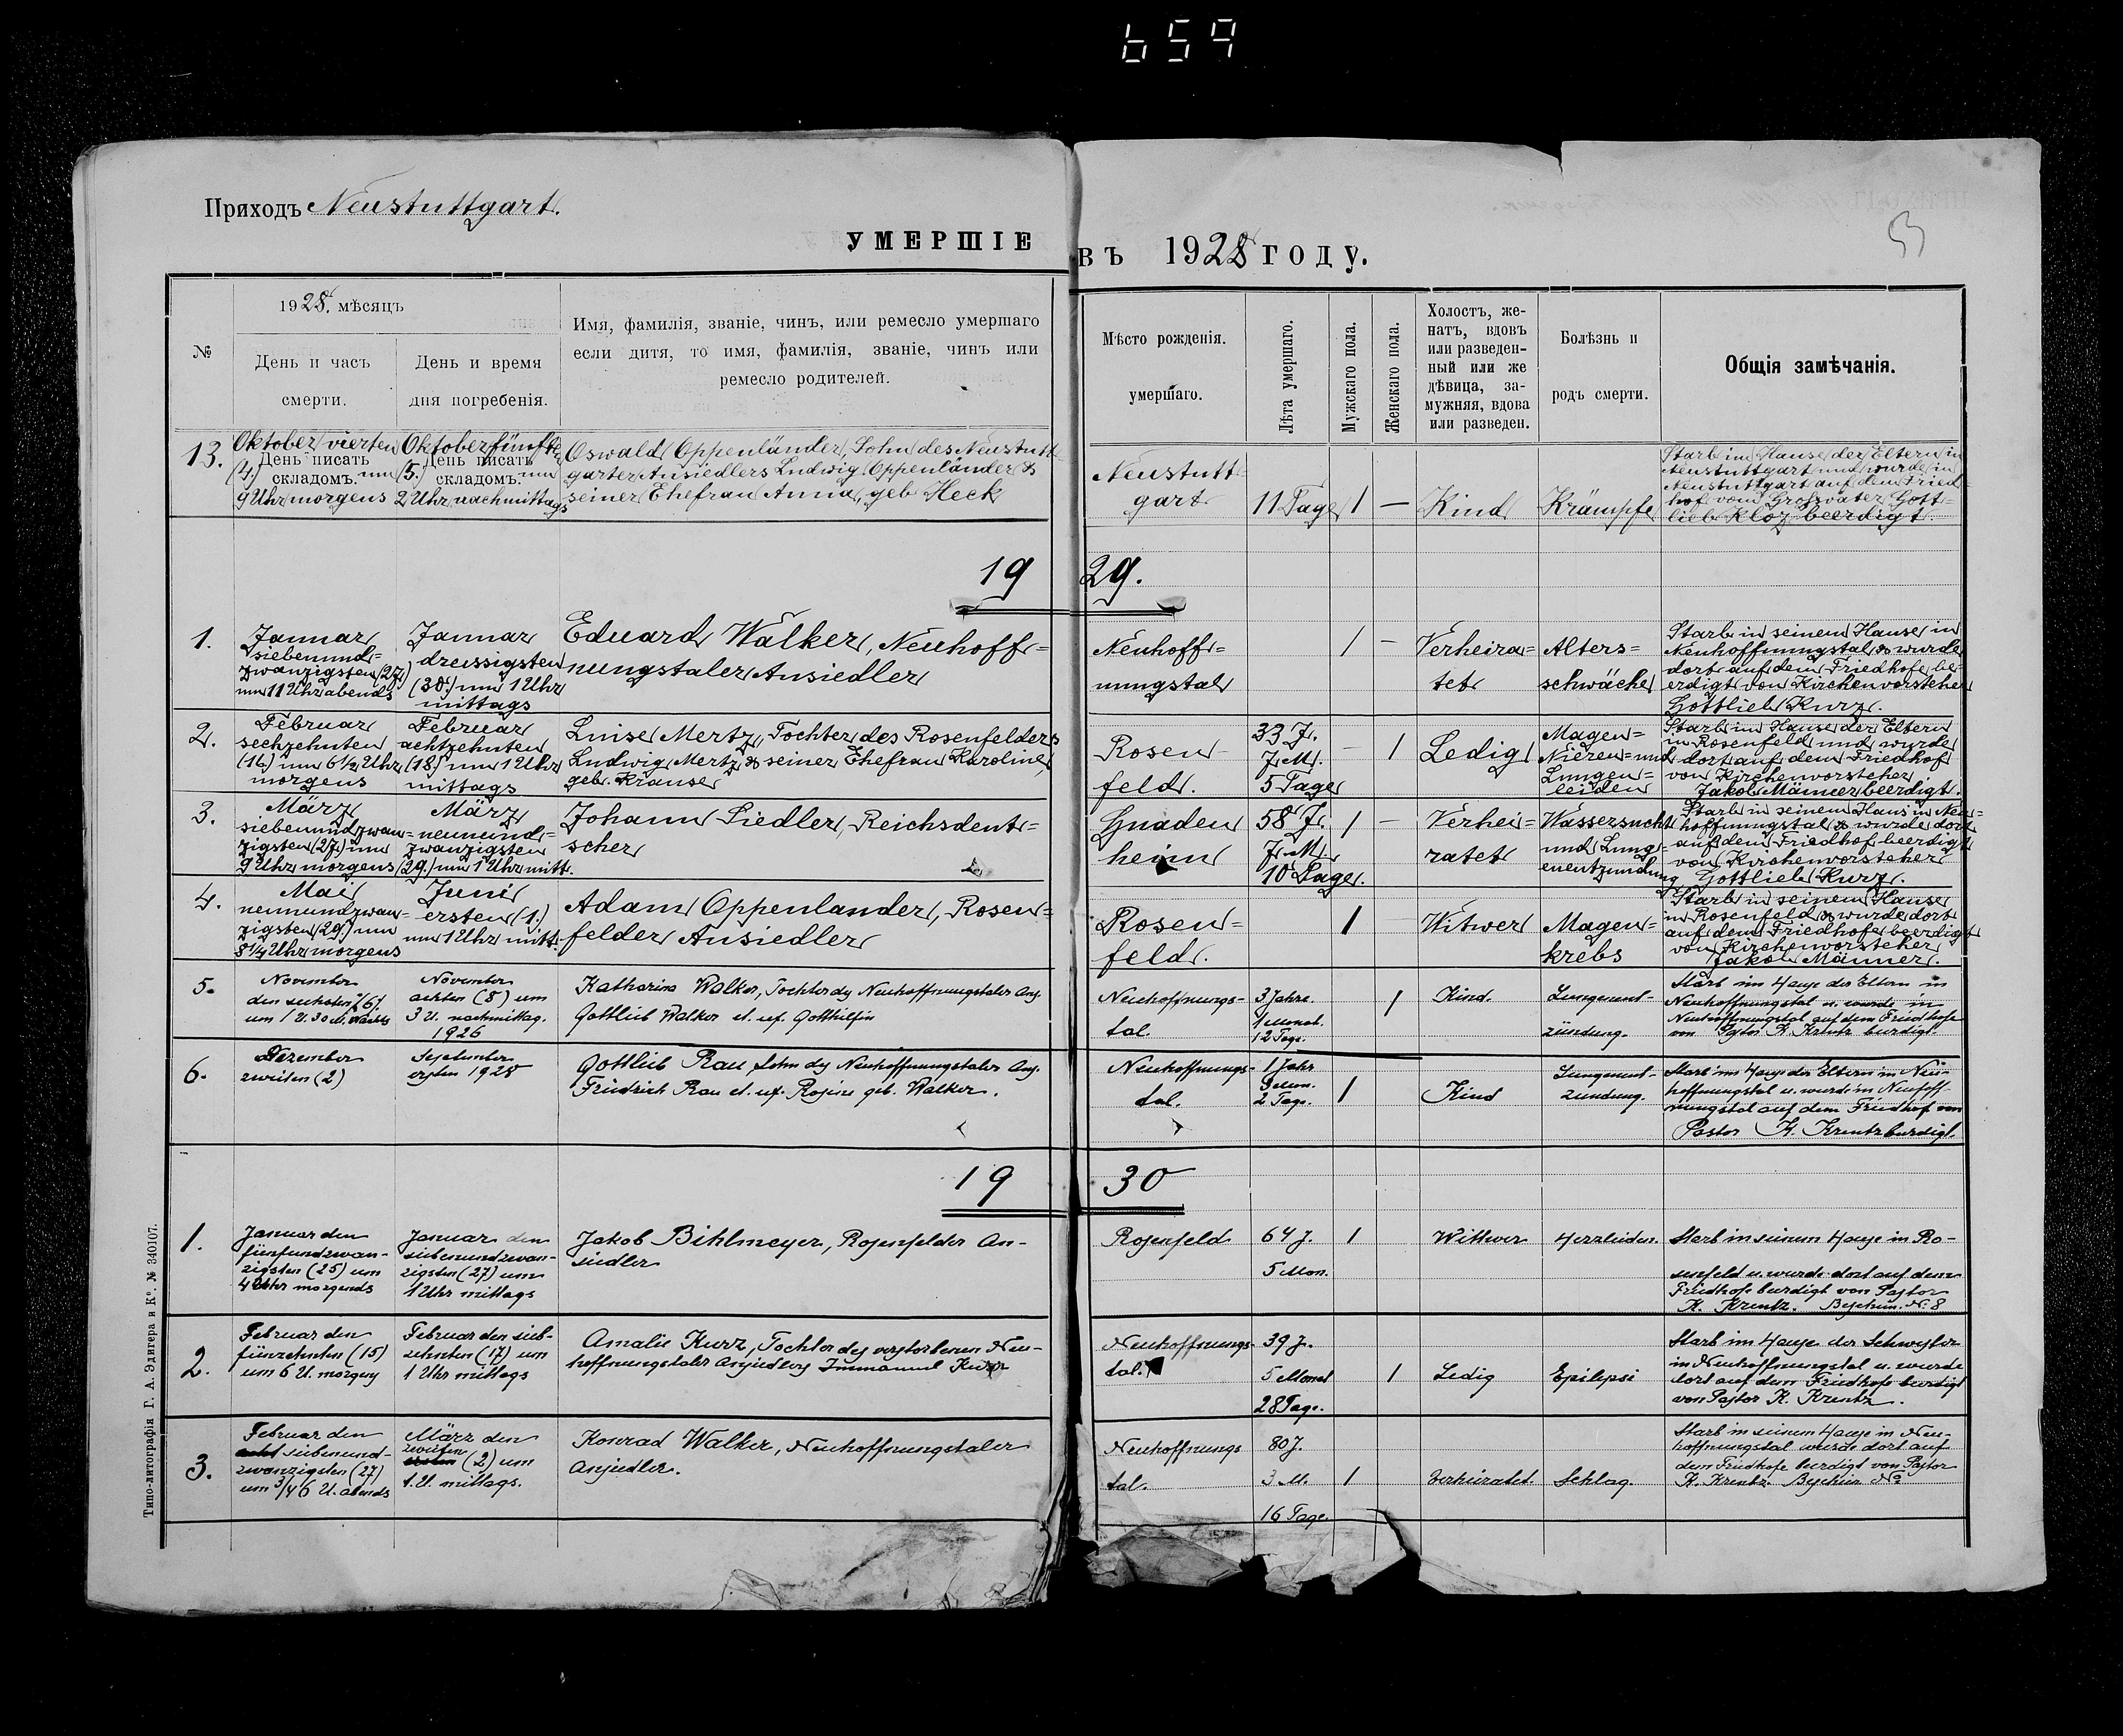 659
Приходъ Neustuttgart.
53
УМЕРШІЕ въ 1928 году.
№
1928. мѣсяцъ
День и часъ
смерти.
День и время
дня погребенія.
Имя, фамилія, званіе, чинъ, или ремесло умершаго
если дитя, то имя, фамилія, званіе, чинъ или
ремесло родителей.
Мѣсто рожденія.
умершаго.
Лѣта умершаго.
Мужскаго пола.
Женскаго пола.
Холостъ, же-
натъ, вдовъ
или разведен-
ный или же
дѣвица, за-
мужняя, вдова
или разведен.
Болѣзнь и
родъ смерти.
Общія замѣчанія.
13.
Oktober vierten
День писать
(4) складомъ. um
9 Uhr morgens
Oktober fünften
День писать
(5.) складомъ. um
2 Uhr nachmittags
Oswald Oppenländer, Sohn des Neustutt-
garter Ansiedlers Ludwig Oppenländer &
seiner Ehefrau Anna, geb Heck
Neustutt-
gart
11 Tage
1
—
Kind
Krämpfe
Starb im Hause der Eltern in
Neustuttgart und wurde in
Neustuttgart auf dem Fried-
hof vom Grossvater Gott-
lieb Kloz beerdigt.
19 29.
1.
Januar
siebenund=
zwanzigsten (27)
um 11 Uhr abends
Januar
dreissigsten
(30.) um 1 Uhr
mittags
Eduard Walker, Neuhoff=
nungstaler Ansiedler
Neuhoff=
nungstal
1
—
Verheira=
tet
Alters=
schwäche
Starb in seinem Hause in
Neuhoffnungstal & wurde
dort auf dem Friedhofe be-
erdigt von Kirchenvorsteher
Gottlieb Kurz.
2.
Februar
sechzehnten
(16) um 6½ Uhr
morgens
Februar
achtzehnten
(18) um 1 Uhr
mittags
Luise Mertz, Tochter des Rosenfelders
Ludwig Mertz & seiner Ehefrau Karoline,
geb. Krause
Rosen-
feld.
33 J.
7 M.
5 Tage
—
1
Ledig
Magen=
Nieren= und
Lungen=
leiden
Starb im Hause der Eltern
in Rosenfeld und wurde
dort auf dem Friedhof
von Kirchenvorsteher
Jakob Männer beerdigt.
3.
März
siebenundzwan=
zigsten (27.) um
9 Uhr morgens
März
neunund=
zwanzigsten
(29.) um 1 Uhr mitt.
Johann Siedler, Reichsdeut=
scher
Gnaden
heim
58 J.
7 M.
10 Tage.
1
—
Verhei=
ratet
Wassersucht
und Lung-
enentzündung
Starb in seinem Haus in Neu=
hoffnungstal & wurde dort
auf dem Friedhof beerdigt
von Kirchenvorsteher
Gottlieb Kurz.
4.
Mai
neunundzwan=
zigsten (29.) um
8¼ Uhr morgens
Juni
ersten (1.)
um 1 Uhr mitt.
Adam Oppenlander, Rosen=
felder Ansiedler
Rosen=
feld.
1
Witwer
Magen=
krebs
Starb in seinem Hause
in Rosenfeld & wurde dort
auf dem Friedhofe beerdigt
von Kirchenvorsteher
Jakob Männer.
5.
November
den sechsten (6)
um 1 U. 30 M. nachts
November
achten (8) um
3 U. nachmittag.
1926
Katharina Walker, Tochter des Neuhoffnungstaler Ans.
Gottlieb Walker et. ux. Gotthilfin
Neuhoffnungs-
tal.
3 Jahre.
1 Monat.
12 Tage.
1
Kind.
Lungenent-
zündung.
Starb im Hause der Eltern in
Neuhoffnungstal u. wurde in
Neuhoffnungstal auf dem Friedhofe
von Pastor K. Kreutz beerdigt.
6.
Dezember
zweiten (2)
September
ersten 1928
Gottlieb Rau, Sohn des Neuhoffnungstaler Ans.
Friedrich Rau et. ux. Rosine geb. Walker.
Neuhoffnungs-
tal.
1 Jahr
3 Mon.
2 Tage.
1
Kind
Lungenent-
zündung.
Starb im Hause der Eltern in Neu-
hoffnungstal u. wurde in Neuhoff-
nungstal auf dem Friedhof von
Pastor K. Kreutz beerdigt.
19 30
1.
Januar den
fünfundzwan-
zigsten (25) um
4 Uhr morgends
Januar den
siebenundzwan-
zigsten (27) um
1 Uhr mittags
Jakob Bihlmeyer, Rosenfelder An-
siedler
Rosenfeld
64 J.
5 Mon.
1
Wittwer
Herzleiden.
Starb in seinem Hause in Ro-
senfeld u. wurde dort auf dem
Friedhofe beerdigt von Pastor
K. Kreutz. Beschein. № 8
2.
Februar den
fünzehnten (15)
um 6 U. morgens
Februar den sieb-
zehnten (17) um
1 Uhr mittags
Amalie Kurz, Tochter des verstorbenen Neu-
hoffnungstaler Ansiedlers Immanuel Kurz
Neuhoffnungs-
tal.
39 J.
5 Monat
28 Tage.
1
Ledig
Epilepsi
Starb im Hause der Schwester
in Neuhoffnungstal u. wurde
dort auf dem Friedhofe beerdigt
von Pastor K. Kreutz.
3.
Februar den
siebenund-
zwanzigsten (27)
um 3/4 6 U. abends
März den
zweiten
ersten (2) um
1 U. mittags.
Konrad Walker, Neuhoffnungstaler
Ansiedler.
Neuhoffnungs
tal.
80 J.
3 M.
16 Tage.
1
Verheiratet.
Schlag.
Starb in seinem Hause in Neu-
hoffnungstal wurde dort auf
dem Friedhofe beerdigt von Pastor
K. Kreutz. Beschein №
Типо-литографія Г. А. Эдигера и К°. № 340107.